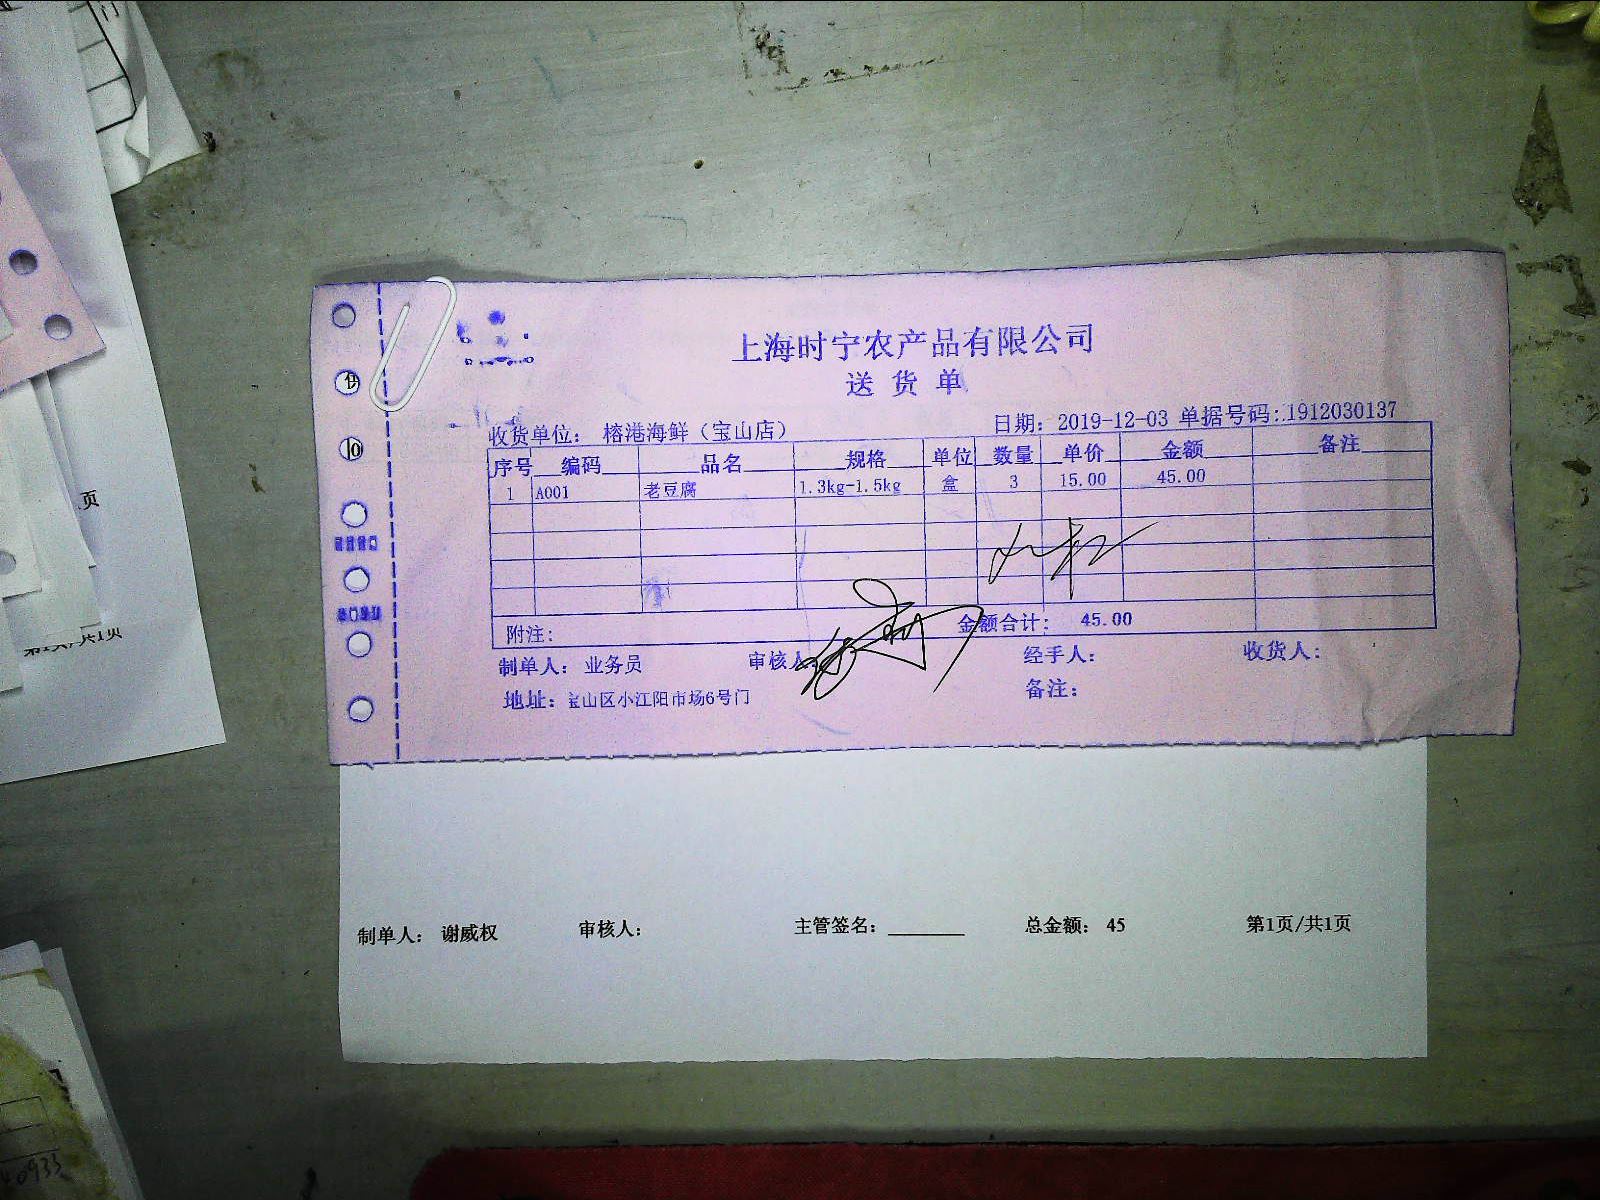 上海时宁农产品有限公司
送 货 单
收货单位： 榕港海鲜（宝山店） 日期：2019-12-03 单据号码：1912030137
序号 编码 品名 规格 单位 数量 单价 金额 备注
1 A001 老豆腐 1.3kg-1.5kg 盒 3 15.00 45.00
附注： 金额合计： 45.00
制单人： 业务员 审核人： 经手人： 收货人：
地址：宝山区小江阳市场6号门 备注：
制单人： 谢威权 审核人： 主管签名：________ 总金额： 45 第1页/共1页
页
共1页